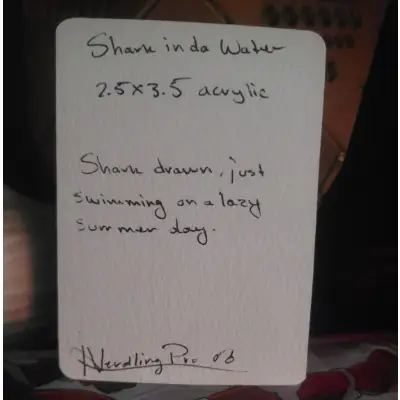 Shark in da Water
2.5x3.5 acrylic
Shark drawn, just
swimming on a lazy
summer day.